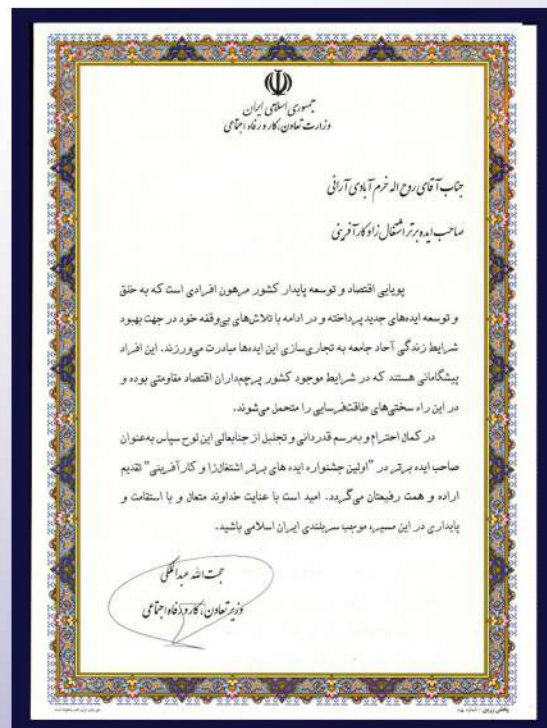 جمهوری اسلامی ایران
وزارت تعاون، کار و رفاه اجتماعی
جناب آقای روح اله خرم آبادی آرانی
صاحب ایده برتر اشتغال زا و کارآفرینی
پویایی اقتصاد و توسعه پایدار کشور مرهون افرادی است که به خلق
و توسعه ایده‌های جدید پرداخته و در ادامه با تلاش‌های بی‌وقفه خود در جهت بهبود
شرایط زندگی آحاد جامعه به تجاری‌سازی این ایده‌ها مبادرت می‌ورزند. این افراد
پیشگامانی هستند که در شرایط موجود کشور پرچم‌داران اقتصاد مقاومتی بوده و
در این راه سختی‌های طاقت‌فرسایی را متحمل می‌شوند.
در کمال احترام و به‌رسم قدردانی و تجلیل از جنابعالی این لوح سپاس به‌عنوان
صاحب ایده برتر در "اولین جشنواره ایده های برتر اشتغال‌زا و کارآفرینی" تقدیم
اراده و همت رفیعتان می‌گردد. امید است با عنایت خداوند متعال و با استقامت و
پایداری در این مسیر، موجب سربلندی ایران اسلامی باشید.
حجت الله عبدالملکی
وزیر تعاون، کار و رفاه اجتماعی